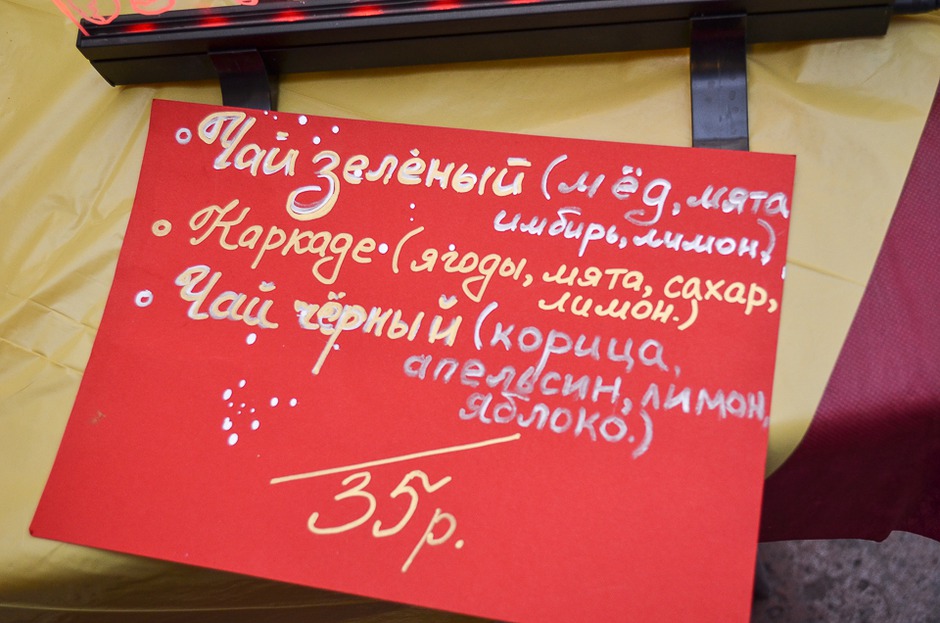 Чай зелёный (мёд, мята
имбирь, лимон)
Каркаде (ягоды, мята, сахар,
лимон.)
Чай чёрный (корица,
апельсин, лимон,
яблоко.)
35р.